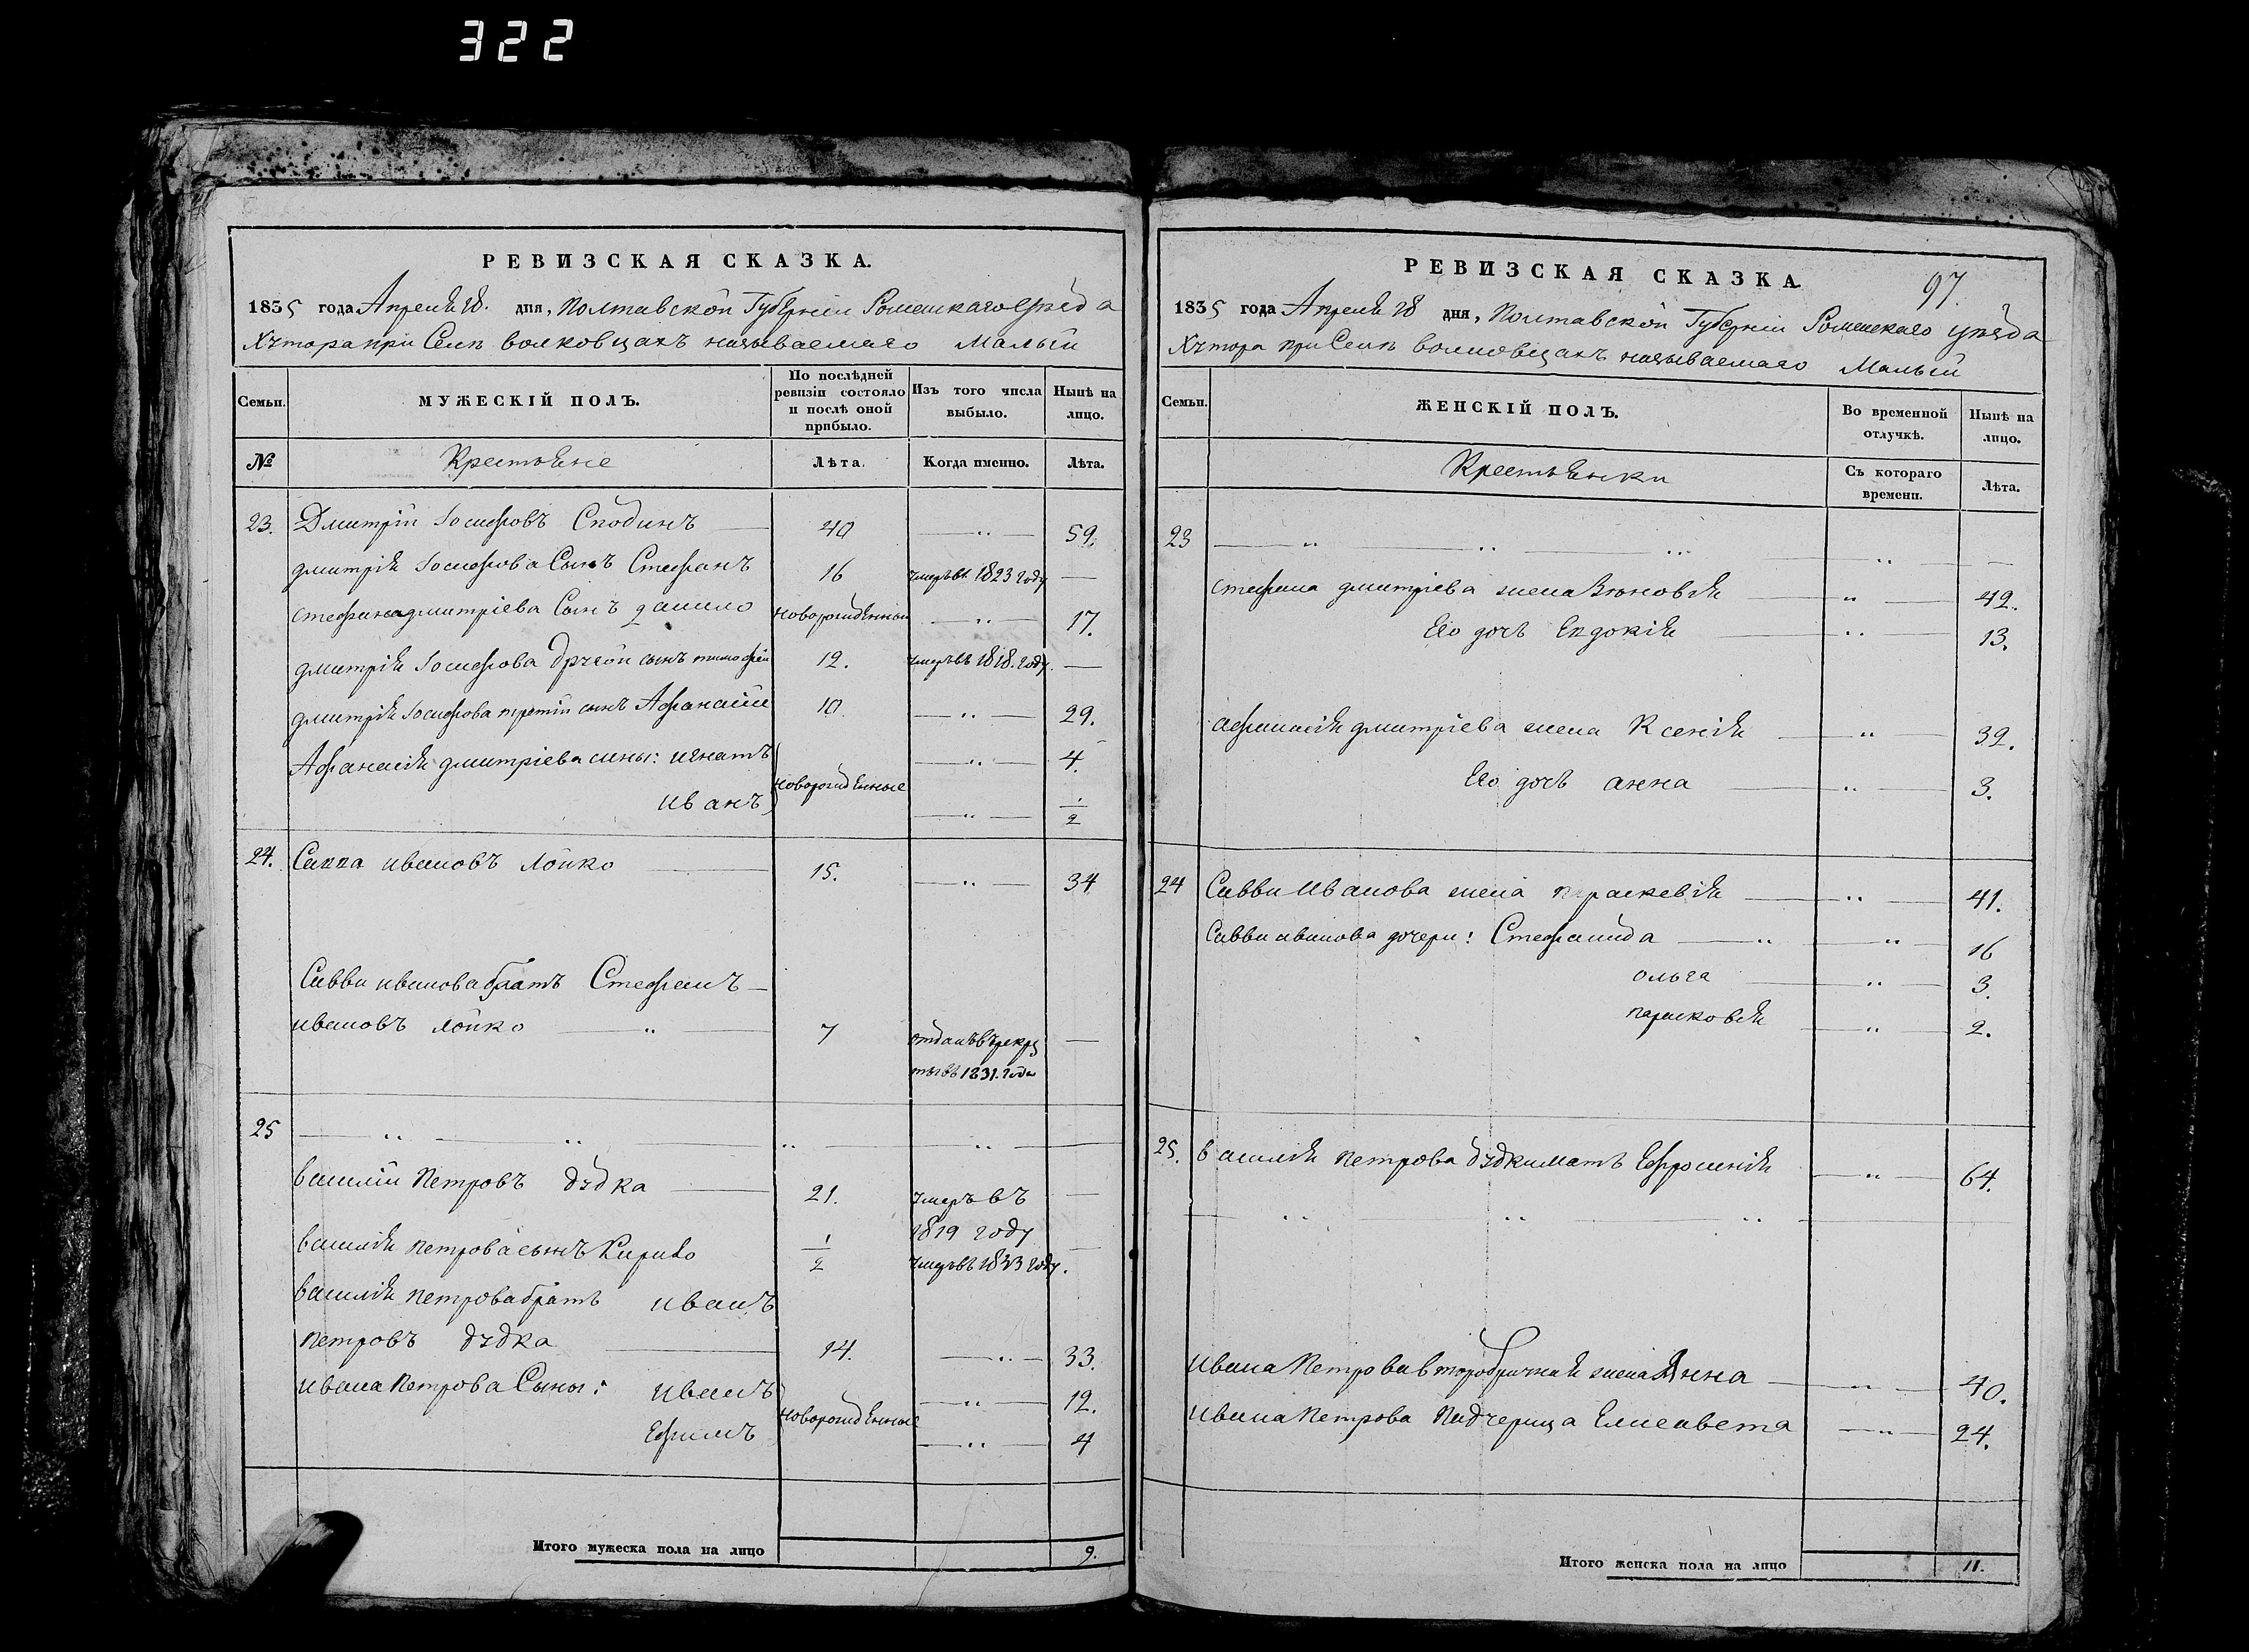 322
РЕВИЗСКАЯ СКАЗКА.
1835 года Апреля 28. дня, Полтавской Губерніи Роменскаго уѣзда
Хутора при Селѣ волковцахъ называемаго Малый
Семьи.
МУЖЕСКІЙ ПОЛЪ.
По послѣдней ревизіи состояло и послѣ оной прибыло.
Изъ того числа выбыло.
Нынѣ на лицо.
№
Крестьяне
Лѣта.
Когда именно.
Лѣта.
23. Дмитрій Іосифовъ Сподинъ 40 59.
дмитрія Іосифова Сынъ Стефанъ 16 умеръ въ 1823 году
стефана дмитріева Сынъ данило новорожденный 17.
дмитрія Іосифова другой сынъ тимофей 12. умеръ въ 1818. году.
дмитрія Іосифова третій сынъ Афанасій 10. 29.
Афанасія дмитріева сины: игнатъ 4.
новорожденные
иванъ 1/2
24. Савва ивановъ Лойко 15. 34
Савви иванова братъ Стефанъ
ивановъ лойко 7 отданъ въ рекру
ты въ 1831. года
25
василій Петровъ дудка 21. умеръ въ
1819 году
василія петрова сынъ Кирило 1/2 умеръ въ 1833 году.
василія петрова братъ иванъ
петровъ дудка 14. 33.
ивана Петрова Сыны: иванъ 12.
новорожденные
Ефимъ 4
Итого мужеска пола на лицо 9.
РЕВИЗСКАЯ СКАЗКА.
97.
1835 года Апреля 28 дня, Полтавской Губерніи Роменскаго уѣзда
Хутора при Селѣ волковцахъ называемаго Малый
Семьи.
ЖЕНСКІЙ ПОЛЪ.
Во временной отлучкѣ.
Нынѣ на лицо.
Крестьянки
Съ котораго времени.
Лѣта.
23
стефана дмитріева жена Зѣновія 42.
Его дочь Евдокія 13.
афанасія дмитріева жена Ксенія 32.
Его дочь анна 3.
24 Савви Иванова жена параскевія 41.
Савви иванова дочери: Стефанида 16
ольга 3.
парасковія 2.
25. василія петрова дудки мать Ефросинія 64.
ивана Петрова второбрачная жена Анна 40.
ивана Петрова Падчерица Елисавета 24.
Итого женска пола на лицо 11.